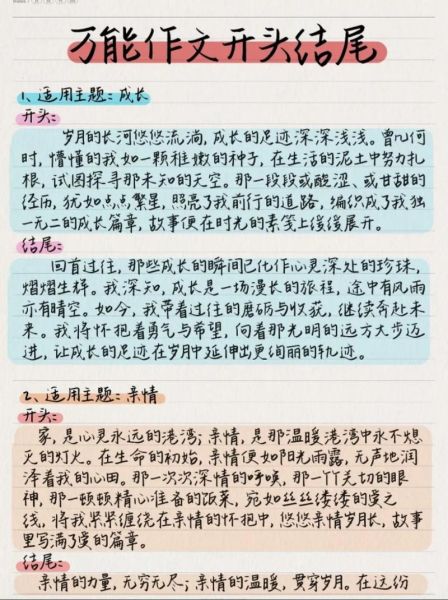 万能作文开头结尾
1、适用主题：成长
开头：
岁月的长河悠悠流淌，成长的足迹深深浅浅。曾几何
时，懵懂的我如一颗稚嫩的种子，在生活的泥土中努力扎
根，试图探寻那未知的天空。那一段段或酸涩、或甘甜的
经历，犹如点点繁星，照亮了我前行的道路，编织成了我独
一无二的成长篇章，故事便在时光的素笺上缓缓展开。
结尾：
回首过往，那些成长的瞬间已化作心灵深处的珍珠，
熠熠生辉。我深知，成长是一场漫长的旅程，途中有风雨
亦有晴空。如今，我带着过往的磨砺与收获，继续奔赴未
来。我将怀抱着勇气与希望，向着那光明的远方大步迈
进，让成长的足迹在岁月中延伸出更绚丽的轨迹。
2、适用主题：亲情
开头：
家，是心灵永远的港湾；亲情，是那温暖港湾中永不熄
灭的灯火。在生命的初始，亲情便如阳光雨露，无声地润
泽着我的心田。那一次次深情的呼唤，那一个个关切的眼
神，那一顿顿精心准备的饭菜，宛如丝丝缕缕的爱之
线，将我紧紧缠绕在亲情的怀抱中，悠悠亲情岁月长，故事
里写满了爱的篇章。
结尾：
亲情的力量，无穷无尽；亲情的温暖，贯穿岁月。在这份